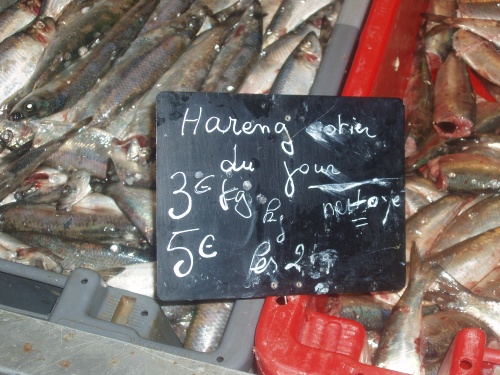 Hareng côtier
du jour
3€ kg nettoyé
kg
5€ les 2